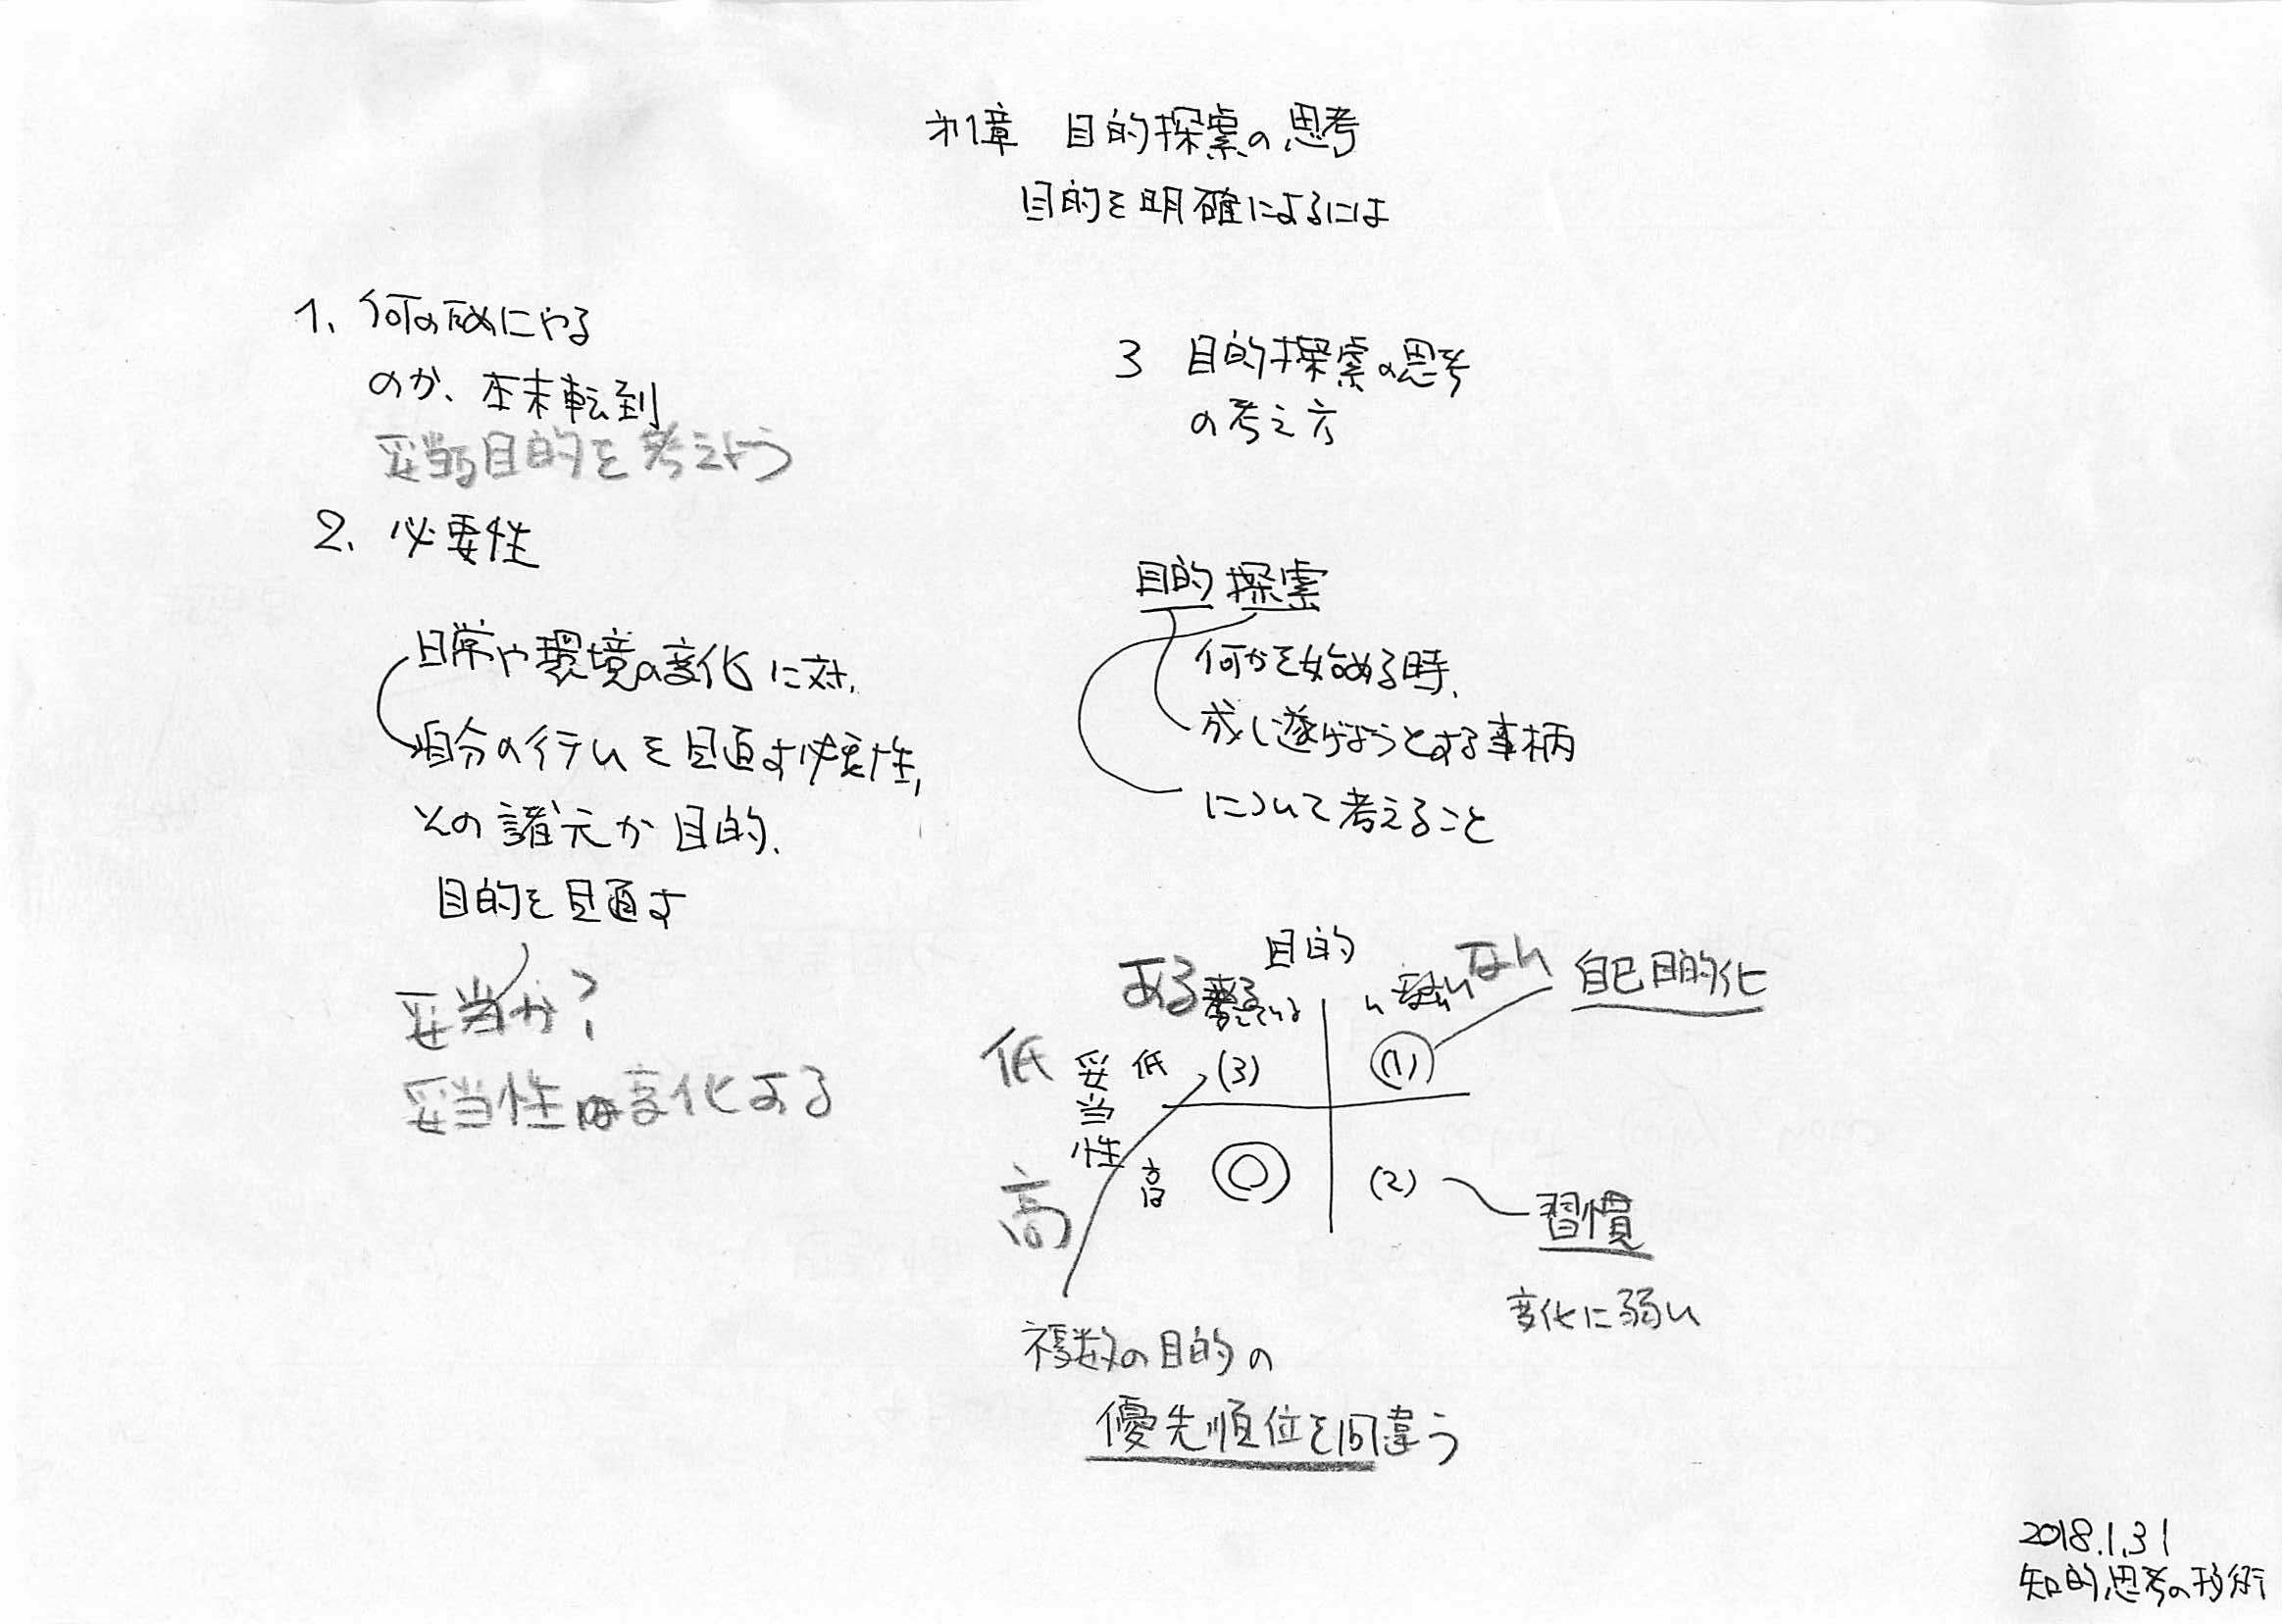 第1章 目的探索の思考
目的を明確にするには
1. 何の為にやる
のか、本末転到
妥当な目的を考えよう
2. 必要性
日常や環境の変化に対、
自分の行ないを見直す必要性,
その諸元が目的、
目的を見直す
妥当か?
妥当性は変化する
3 目的探索の思考
の考え方
目的探索
何かを始める時、
成し遂げようとする事柄
について考えること
目的
ある ない
自己目的化
低 妥当性 低 (3) (1)
高 高 ◎ (2)
習慣
変化に弱い
複数の目的の
優先順位を間違う
2018.1.31
知的思考の技術